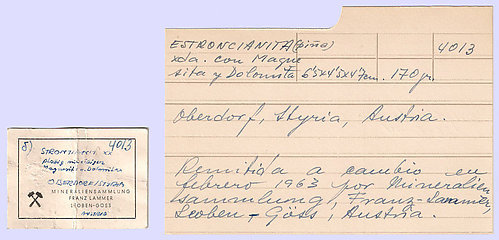 8) STRONTIANIT XX 4013
Magnesit u. Dolomit
OBERDORF/STYRIA
MINERALIENSAMMLUNG
FRANZ LAMMER
LEOBEN-GÖSS
AUSTRIA
ESTRONCIANITA (piña) 4013
xda. con Magne
sita y Dolomita 6'5x4'5x4'7cm. 170 gr.
Oberdorf, Styria, Austria.
Remitida a cambio en
febrero 1963 por Mineralien
sammlung, Franz-Lammer,
Leoben-Göss, Austria.